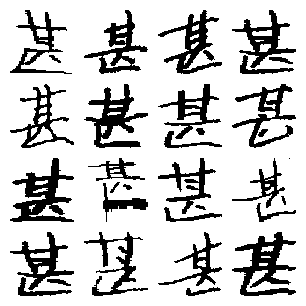 甚甚甚甚
甚甚甚甚
甚甚甚甚
甚甚甚甚